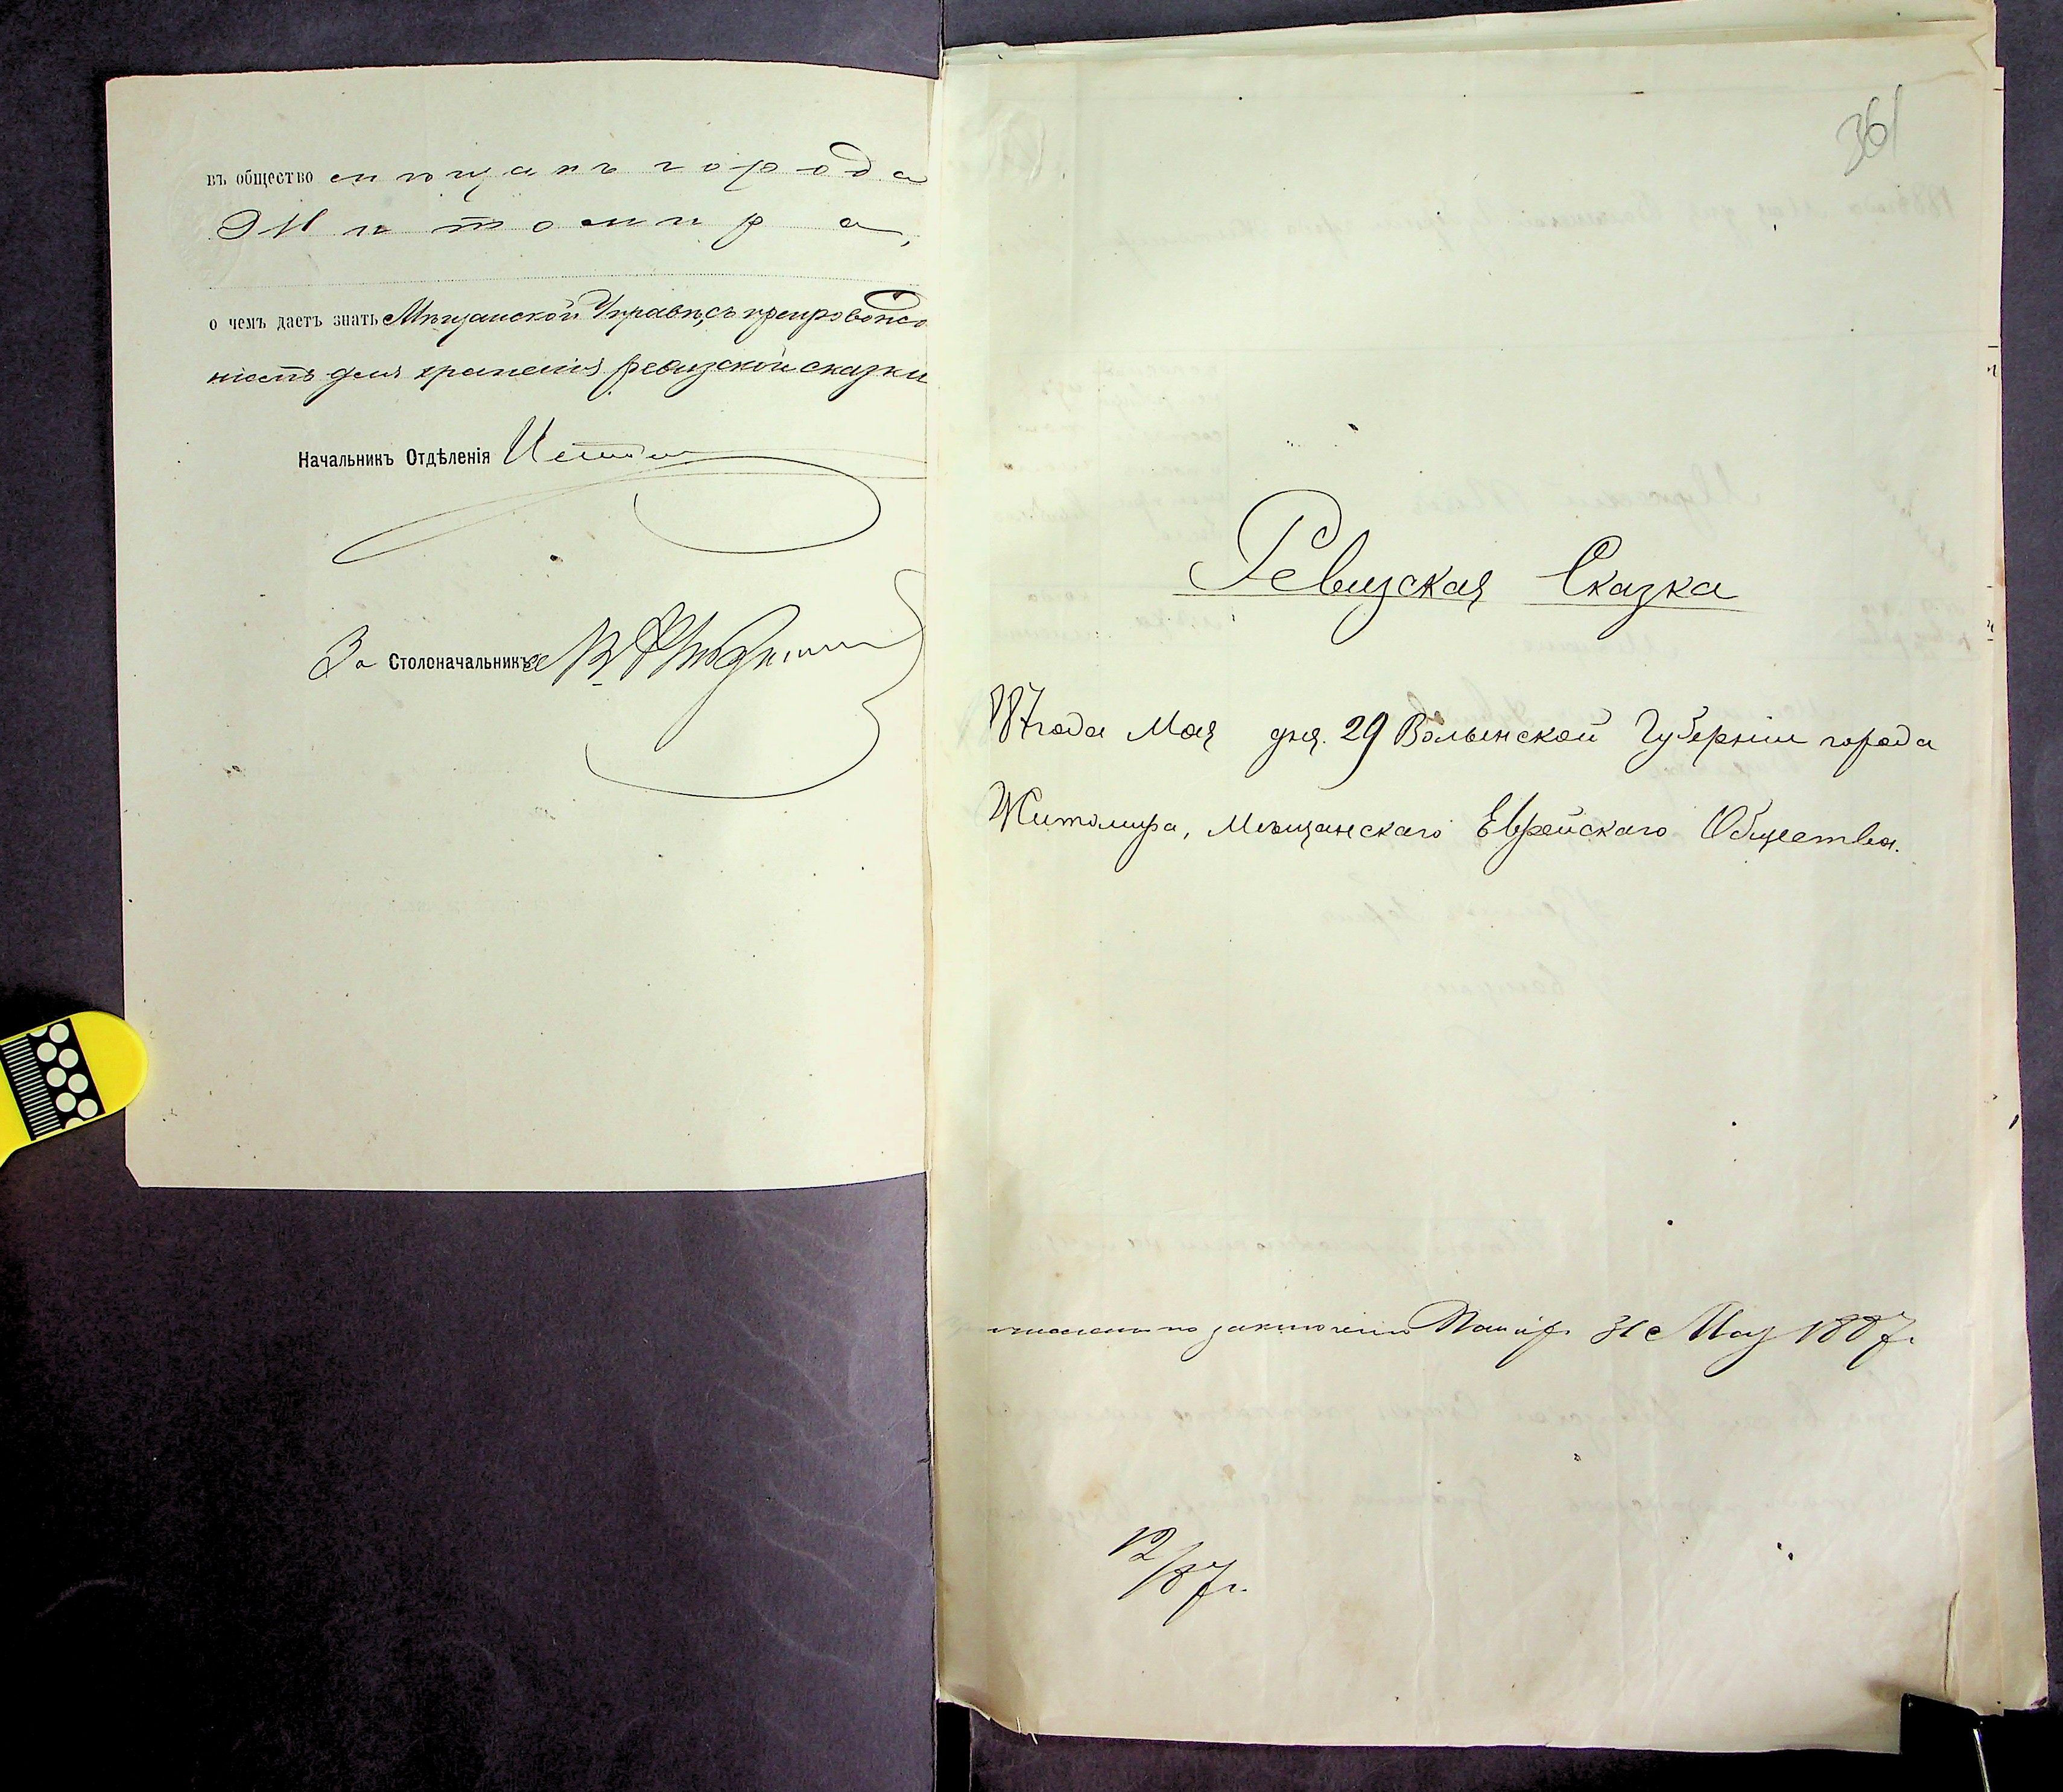 въ общество мѣщанъ города
Житомира,
о чемъ даетъ знать Мѣщанской Управѣ, съ препровожде
ніемъ для храненія ревизской сказки
Начальникъ Отдѣленія
За Столоначальника
361
Ревизская Сказка
1887 года Мая дня 29 Волынской Губерніи города
Житомира, Мѣщанскаго Еврейскаго Общества.
по заключенію 31 Мая 1887 г.
12/87 г.